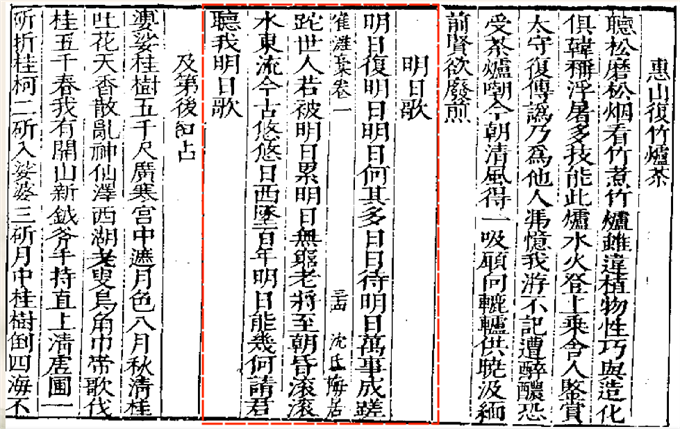 惠山復竹爐茶
聽松磨松烟看竹煮竹爐雖違植物性巧與造化
俱韓稱浮屠多技能此爐水火登上乘舍人鑒賞
太守復傳譌乃為他人馮憶我游不記遭醉醲恐
受茶爐嘲今朝清風得一吸頭向轆轤供曉汲緬
前賢欲廢煎
明日歌
明日復明日明日何其多日日待明日萬事成蹉
集卷一 沈氏梅居
跎世人若被明日累明日無窮老將至朝昏滾滾
水東流今古悠悠日西墜百年明日能幾何請君
聽我明日歌
及第後占
婆娑桂樹五千尺廣寒宮中遮月色八月秋清桂
吐花天香散亂神仙澤西湖老叟烏角巾帶歌伐
桂五千春我有開山新鉞斧手持直上清虛圃一
斫折桂柯二斫入婆娑三斫月中桂樹倒四海不